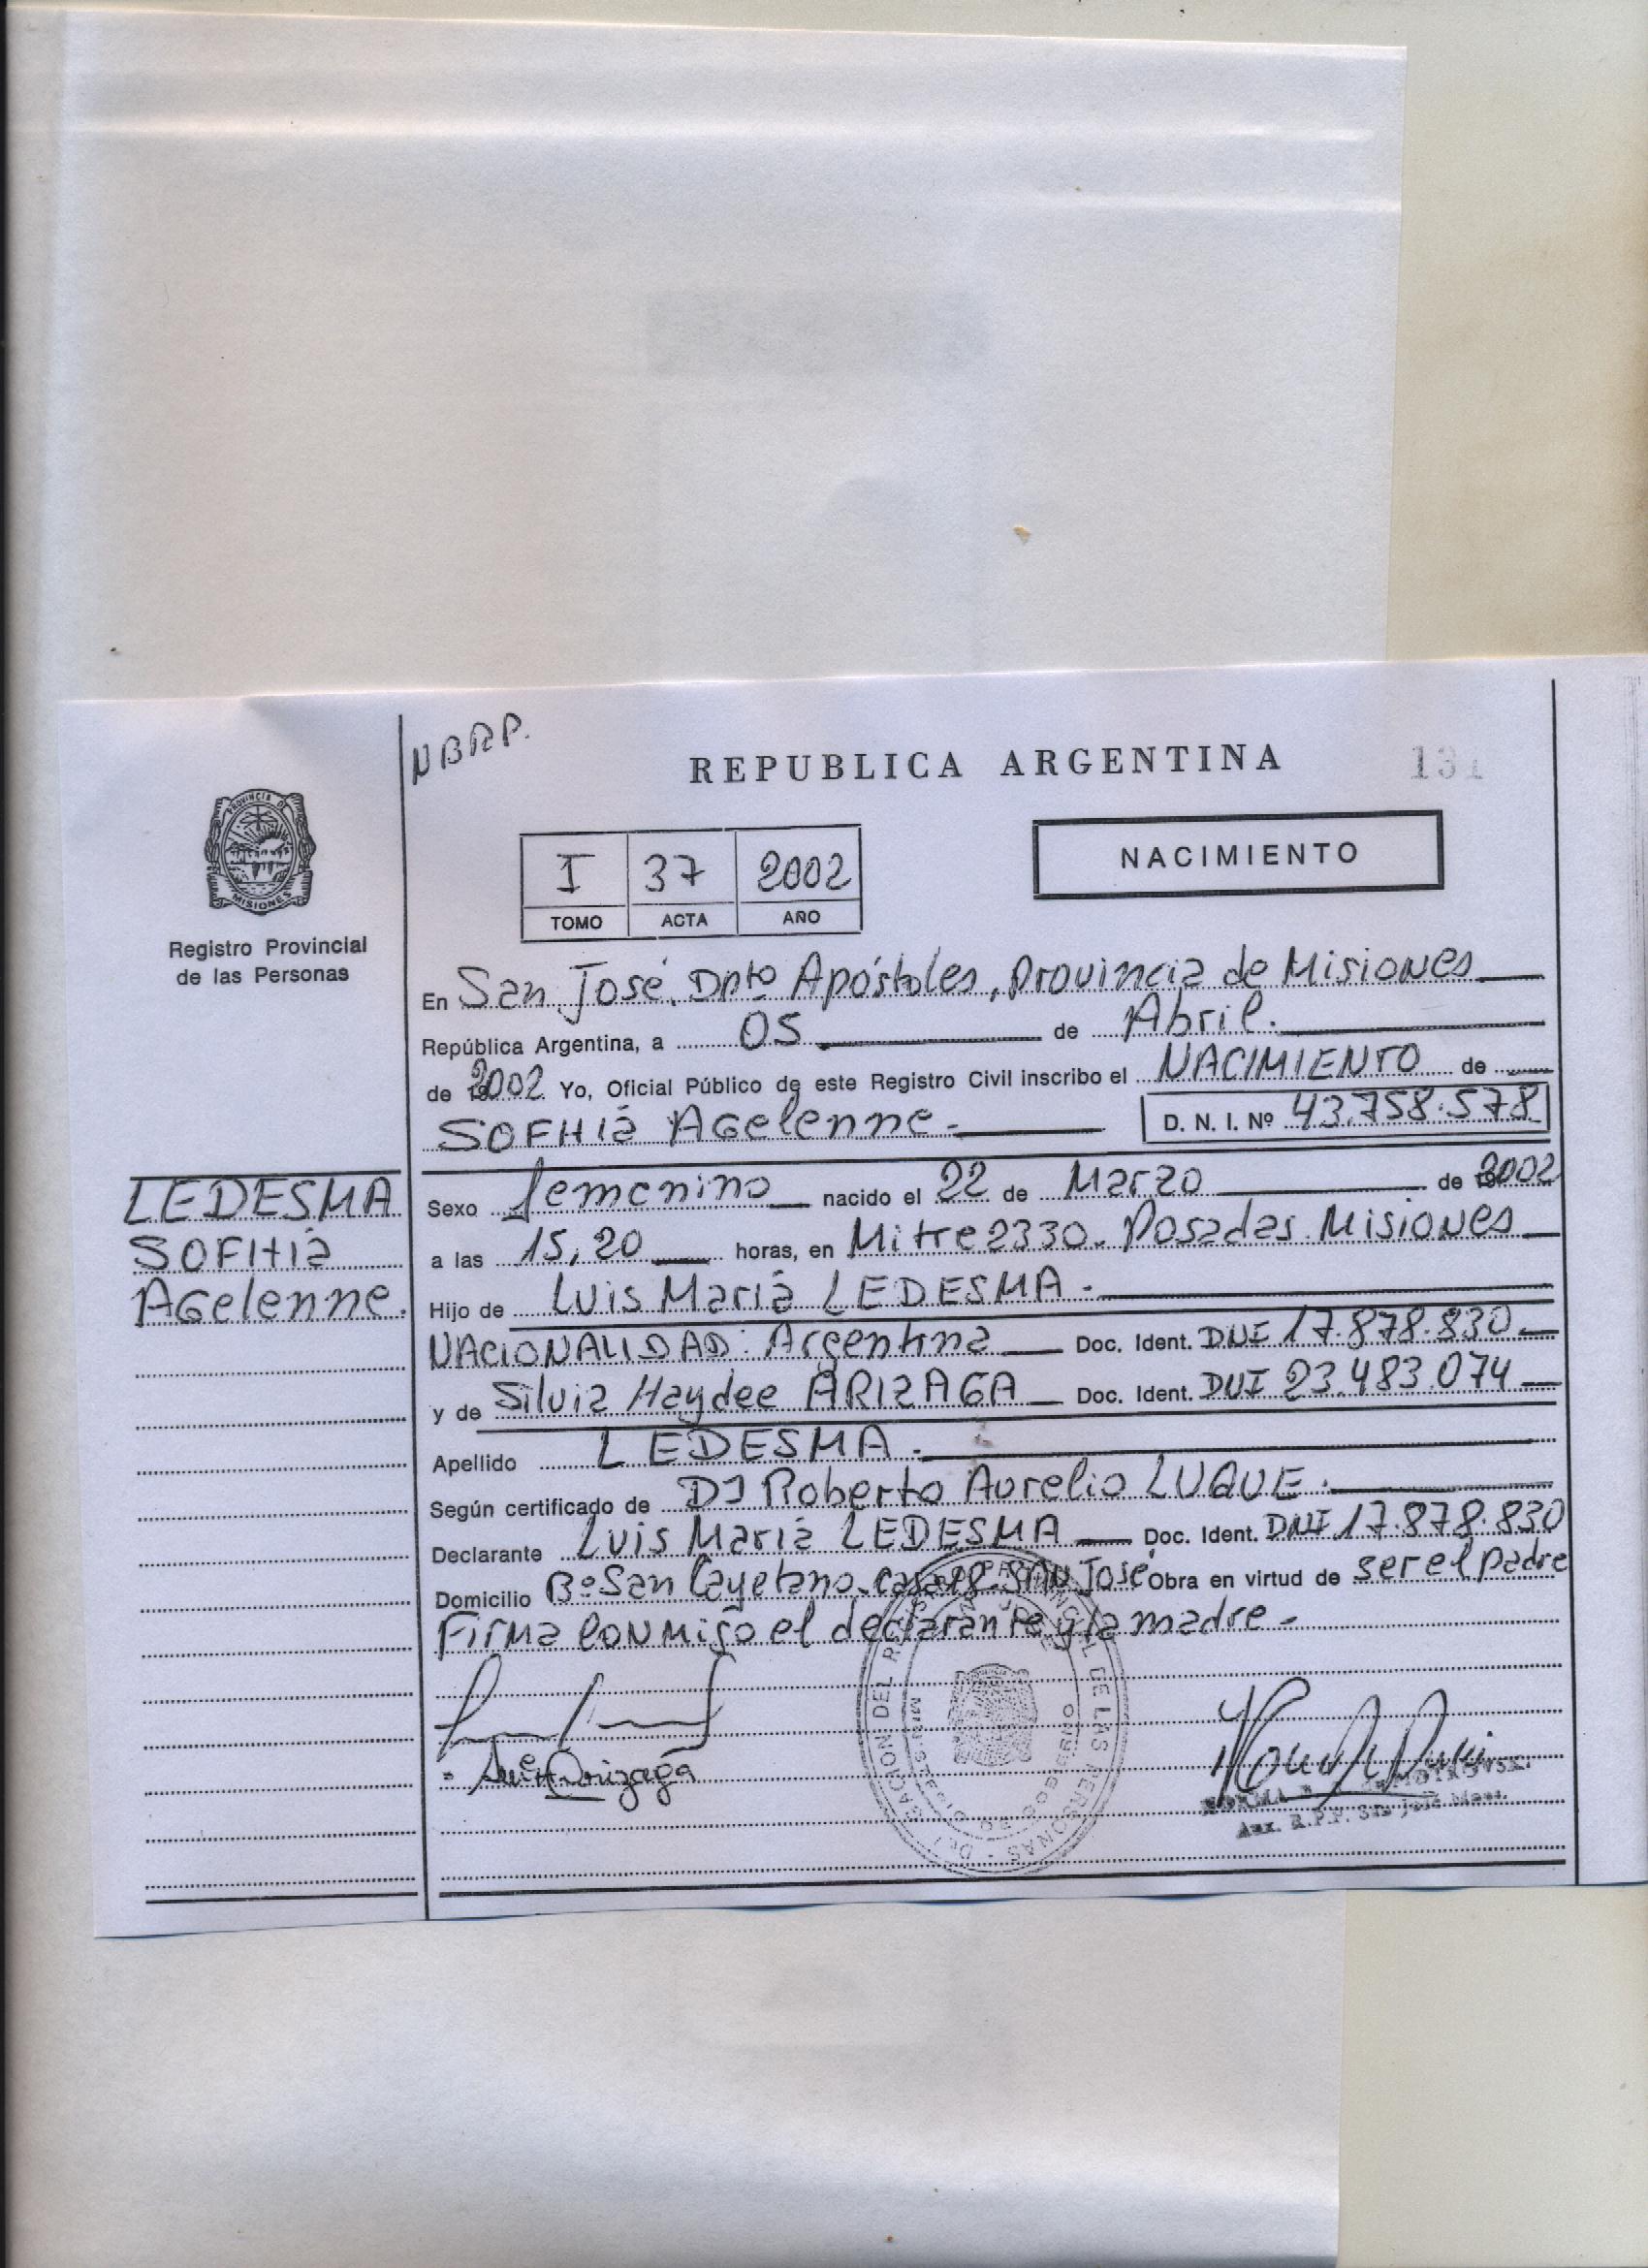 NBRP.
REPUBLICA ARGENTINA
131
PROVINCIA DE
MISIONES
Registro Provincial
de las Personas
I 37 2002
TOMO ACTA AÑO
NACIMIENTO
En San José. Dpto Apóstoles, Provincia de Misiones
República Argentina, a 05 de Abril.
de 2002 Yo, Oficial Público de este Registro Civil inscribo el NACIMIENTO de
SOFHiá AGelenne. D. N. I. Nº 43.758.578
LEDESMA
SOFHiá
AGelenne.
Sexo femenino nacido el 22 de Marzo de 2002
a las 15,20 horas, en Mitre 2330. Posadas. Misiones
Hijo de Luis Mariá LEDESMA.
NACIONALIDAD: Argentina Doc. Ident. DNI 17.878.830
y de Silvia Haydee ARIZAGA Doc. Ident. DNI 23.483.074
Apellido LEDESMA.
Según certificado de Roberto Aurelio LUQUE.
Declarante Luis Mariá LEDESMA Doc. Ident. DNI 17.878.830
Domicilio Bº San Cayetano. SAN José Obra en virtud de ser el padre
Firma conmigo el declarante y la madre.
DE LAS PERSONAS
Aux. R.P.P. San José Mnes.